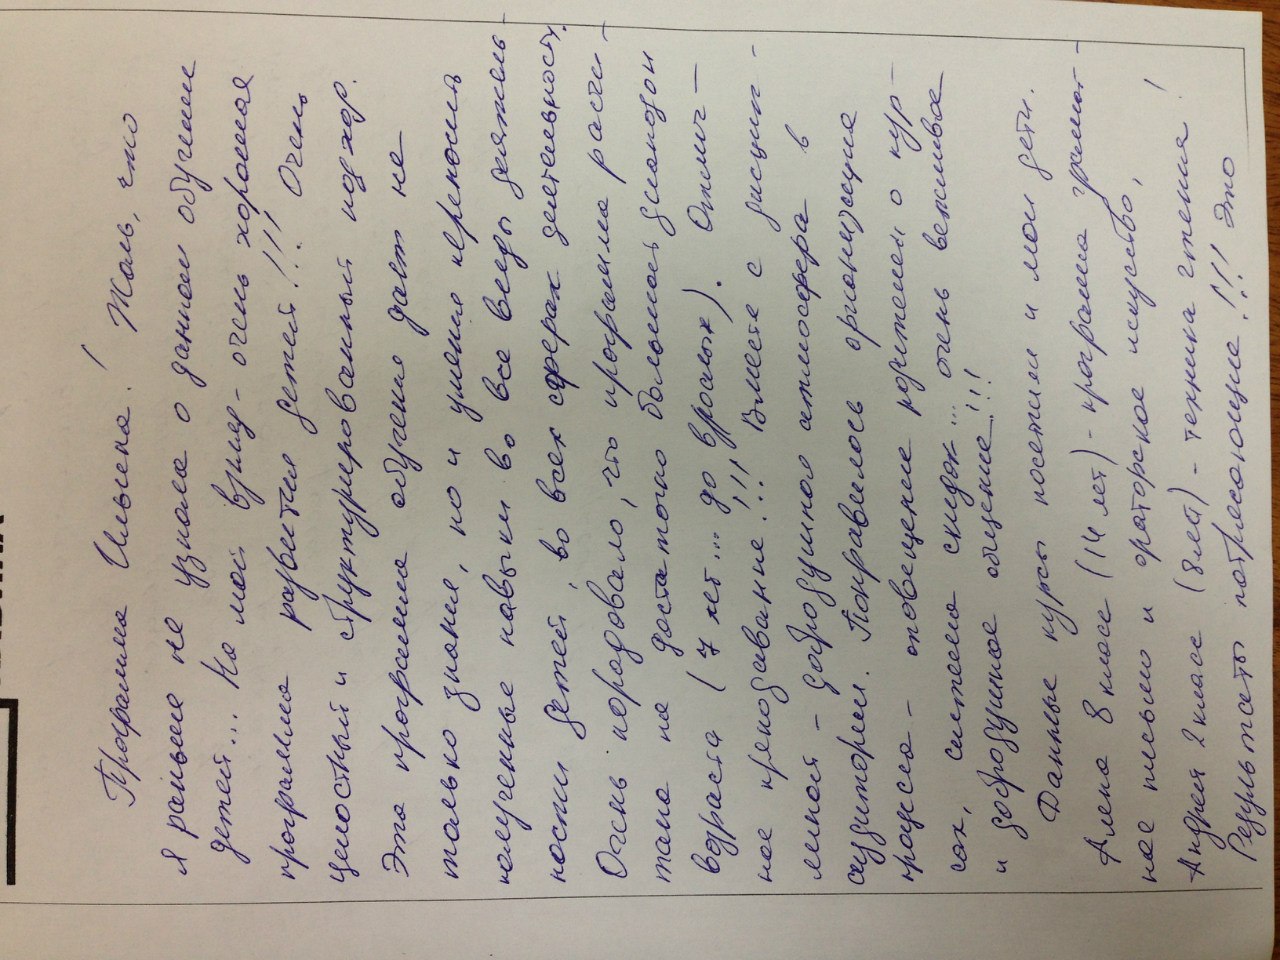 Програма Ильина! Жаль, что
я раньше не узнала о данном обучении
детей... На мой взгляд - очень хорошая
программа развития детей!!! Очень
целостный и структурированный подход.
Эта програма обучения дает не
только знания, но и умение переносить
полученные навыки во все виды деятель-
ности детей, во всех сферах деятельности.
Очень порадовало, что програма расчи-
тана на достаточно большой диапазон
возраста (7 лет... до взрослых). Отлич-
ное преподавание!!! Вместе с дисцип-
линой - добродушная атмосфера в
аудитории. Понравилась организация
процесса - оповещение родителей о кур-
сах, система скидок... очень вежливое
и добродушное общение!!!
Данные курсы посетили и мои дети.
Алена 8 класс (14 лет) - програма грамот-
ное письмо и ораторское искуство,
Андрей 2 класс (8 лет) - техника чтения!
Результаты потрясающие!!! Это